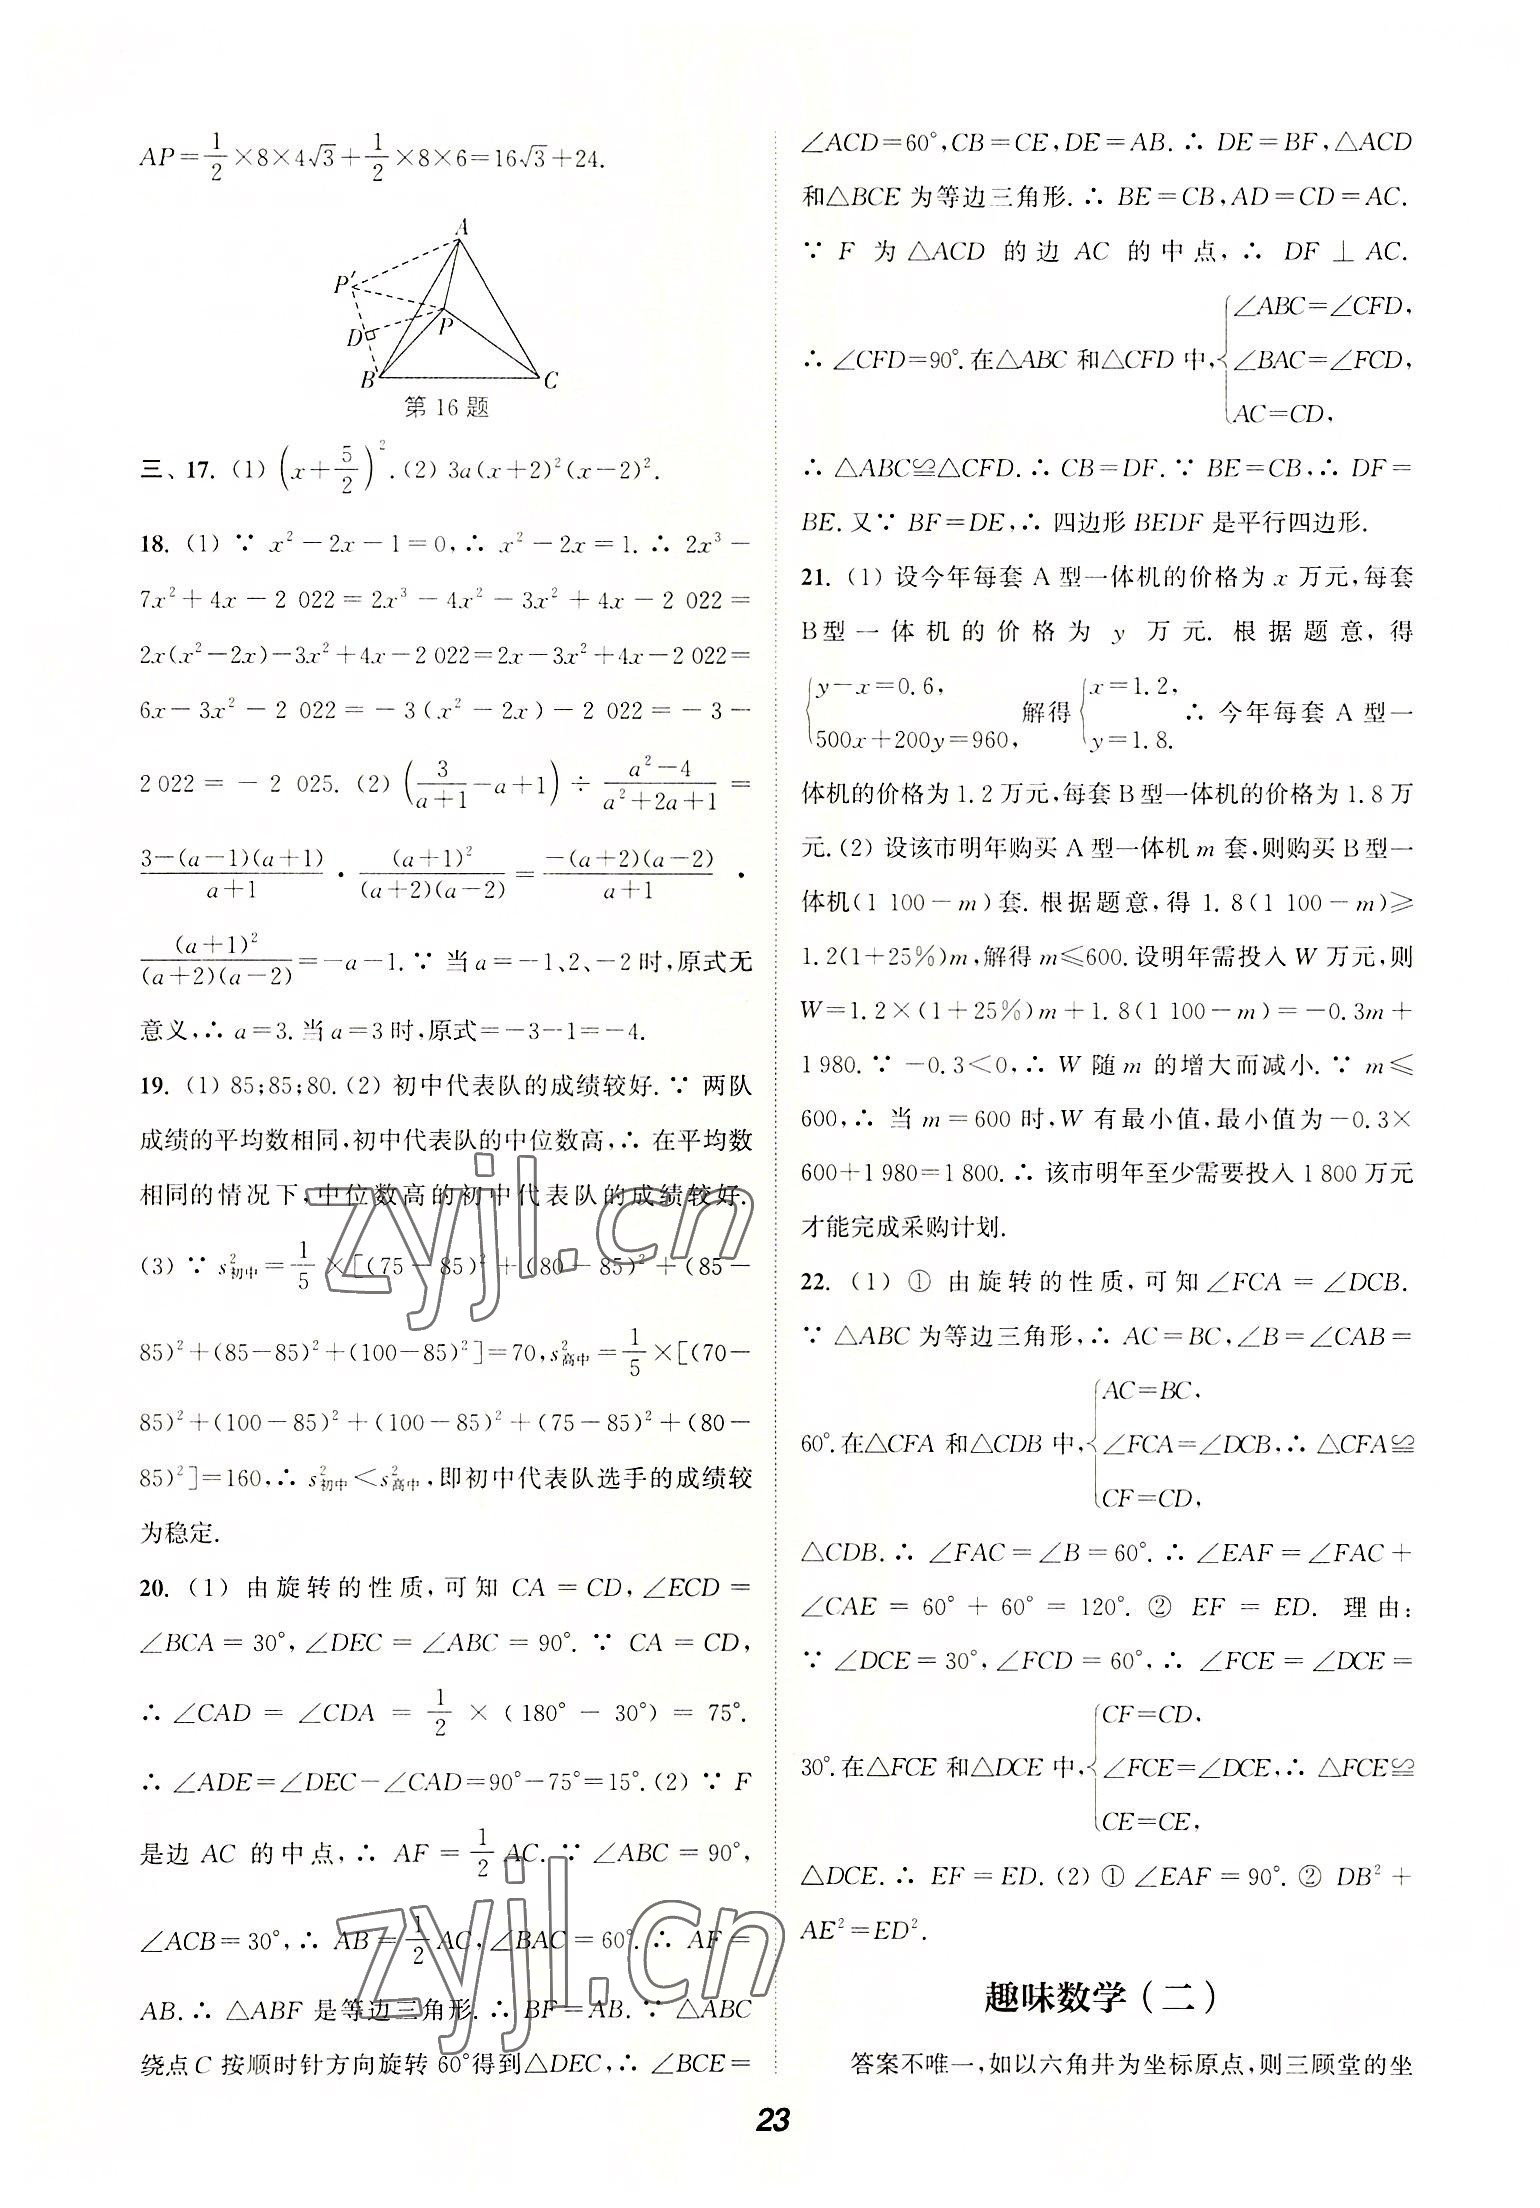 AP=1/2×8×4√3+1/2×8×6=16√3+24.
A
P′
D
P
B
C
第16题
三、17. (1) (x+5/2)². (2) 3a(x+2)²(x-2)².
18. (1) ∵ x²-2x-1=0,∴ x²-2x=1. ∴ 2x³-
7x²+4x-2 022=2x³-4x²-3x²+4x-2 022=
2x(x²-2x)-3x²+4x-2 022=2x-3x²+4x-2 022=
6x-3x²-2 022=-3(x²-2x)-2 022=-3-
2 022=-2 025. (2) (3/(a+1)-a+1)÷(a²-4)/(a²+2a+1)=
(3-(a-1)(a+1))/(a+1)·(a+1)²/((a+2)(a-2))=(-(a+2)(a-2))/(a+1)·
(a+1)²/((a+2)(a-2))=-a-1. ∵ 当a=-1、2、-2时,原式无
意义,∴ a=3.当a=3时,原式=-3-1=-4.
19. (1) 85;85;80. (2) 初中代表队的成绩较好. ∵ 两队
成绩的平均数相同,初中代表队的中位数高,∴ 在平均数
相同的情况下,中位数高的初中代表队的成绩较好.
(3) ∵ s²初中=1/5×[(75-85)²+(80-85)²+(85-
85)²+(85-85)²+(100-85)²]=70,s²高中=1/5×[(70-
85)²+(100-85)²+(100-85)²+(75-85)²+(80-
85)²]=160,∴ s²初中<s²高中,即初中代表队选手的成绩较
为稳定.
20. (1) 由旋转的性质,可知 CA=CD,∠ECD=
∠BCA=30°,∠DEC=∠ABC=90°. ∵ CA=CD,
∴ ∠CAD=∠CDA=1/2×(180°-30°)=75°.
∴ ∠ADE=∠DEC-∠CAD=90°-75°=15°. (2) ∵ F
是边 AC 的中点,∴ AF=1/2AC. ∵ ∠ABC=90°,
∠ACB=30°,∴ AB=1/2AC,∠BAC=60°. ∴ AF=
AB. ∴ △ABF 是等边三角形. ∴ BF=AB. ∵ △ABC
绕点C按顺时针方向旋转60°得到△DEC,∴ ∠BCE=
∠ACD=60°,CB=CE,DE=AB. ∴ DE=BF,△ACD
和△BCE 为等边三角形. ∴ BE=CB,AD=CD=AC.
∵ F 为△ACD 的边 AC 的中点,∴ DF⊥AC.
∴ ∠CFD=90°.在△ABC 和△CFD 中,{∠ABC=∠CFD,
∠BAC=∠FCD,
AC=CD,
∴ △ABC≌△CFD. ∴ CB=DF. ∵ BE=CB,∴ DF=
BE.又∵ BF=DE,∴ 四边形 BEDF 是平行四边形.
21. (1) 设今年每套 A 型一体机的价格为 x 万元,每套
B型一体机的价格为 y 万元. 根据题意,得
{y-x=0.6,
500x+200y=960, 解得{x=1.2,
y=1.8. ∴ 今年每套 A 型一
体机的价格为1.2万元,每套B型一体机的价格为1.8万
元. (2) 设该市明年购买A型一体机m套,则购买B型一
体机(1 100-m)套. 根据题意,得 1.8(1 100-m)≥
1.2(1+25%)m,解得m≤600.设明年需投入W万元,则
W=1.2×(1+25%)m+1.8(1 100-m)=-0.3m+
1 980. ∵ -0.3<0,∴ W 随m 的增大而减小. ∵ m≤
600,∴ 当 m=600 时,W 有最小值,最小值为-0.3×
600+1 980=1 800. ∴ 该市明年至少需要投入1 800万元
才能完成采购计划.
22. (1) ① 由旋转的性质,可知∠FCA=∠DCB.
∵ △ABC 为等边三角形,∴ AC=BC,∠B=∠CAB=
60°.在△CFA 和△CDB 中,{AC=BC,
∠FCA=∠DCB,
CF=CD, ∴ △CFA≌
△CDB. ∴ ∠FAC=∠B=60°. ∴ ∠EAF=∠FAC+
∠CAE=60°+60°=120°. ② EF=ED. 理由:
∵ ∠DCE=30°,∠FCD=60°,∴ ∠FCE=∠DCE=
30°.在△FCE 和△DCE 中,{CF=CD,
∠FCE=∠DCE,
CE=CE, ∴ △FCE≌
△DCE. ∴ EF=ED. (2) ① ∠EAF=90°. ② DB²+
AE²=ED².
趣味数学(二)
答案不唯一,如以六角井为坐标原点,则三顾堂的坐
23
zyjl.cn
zyjl.cn